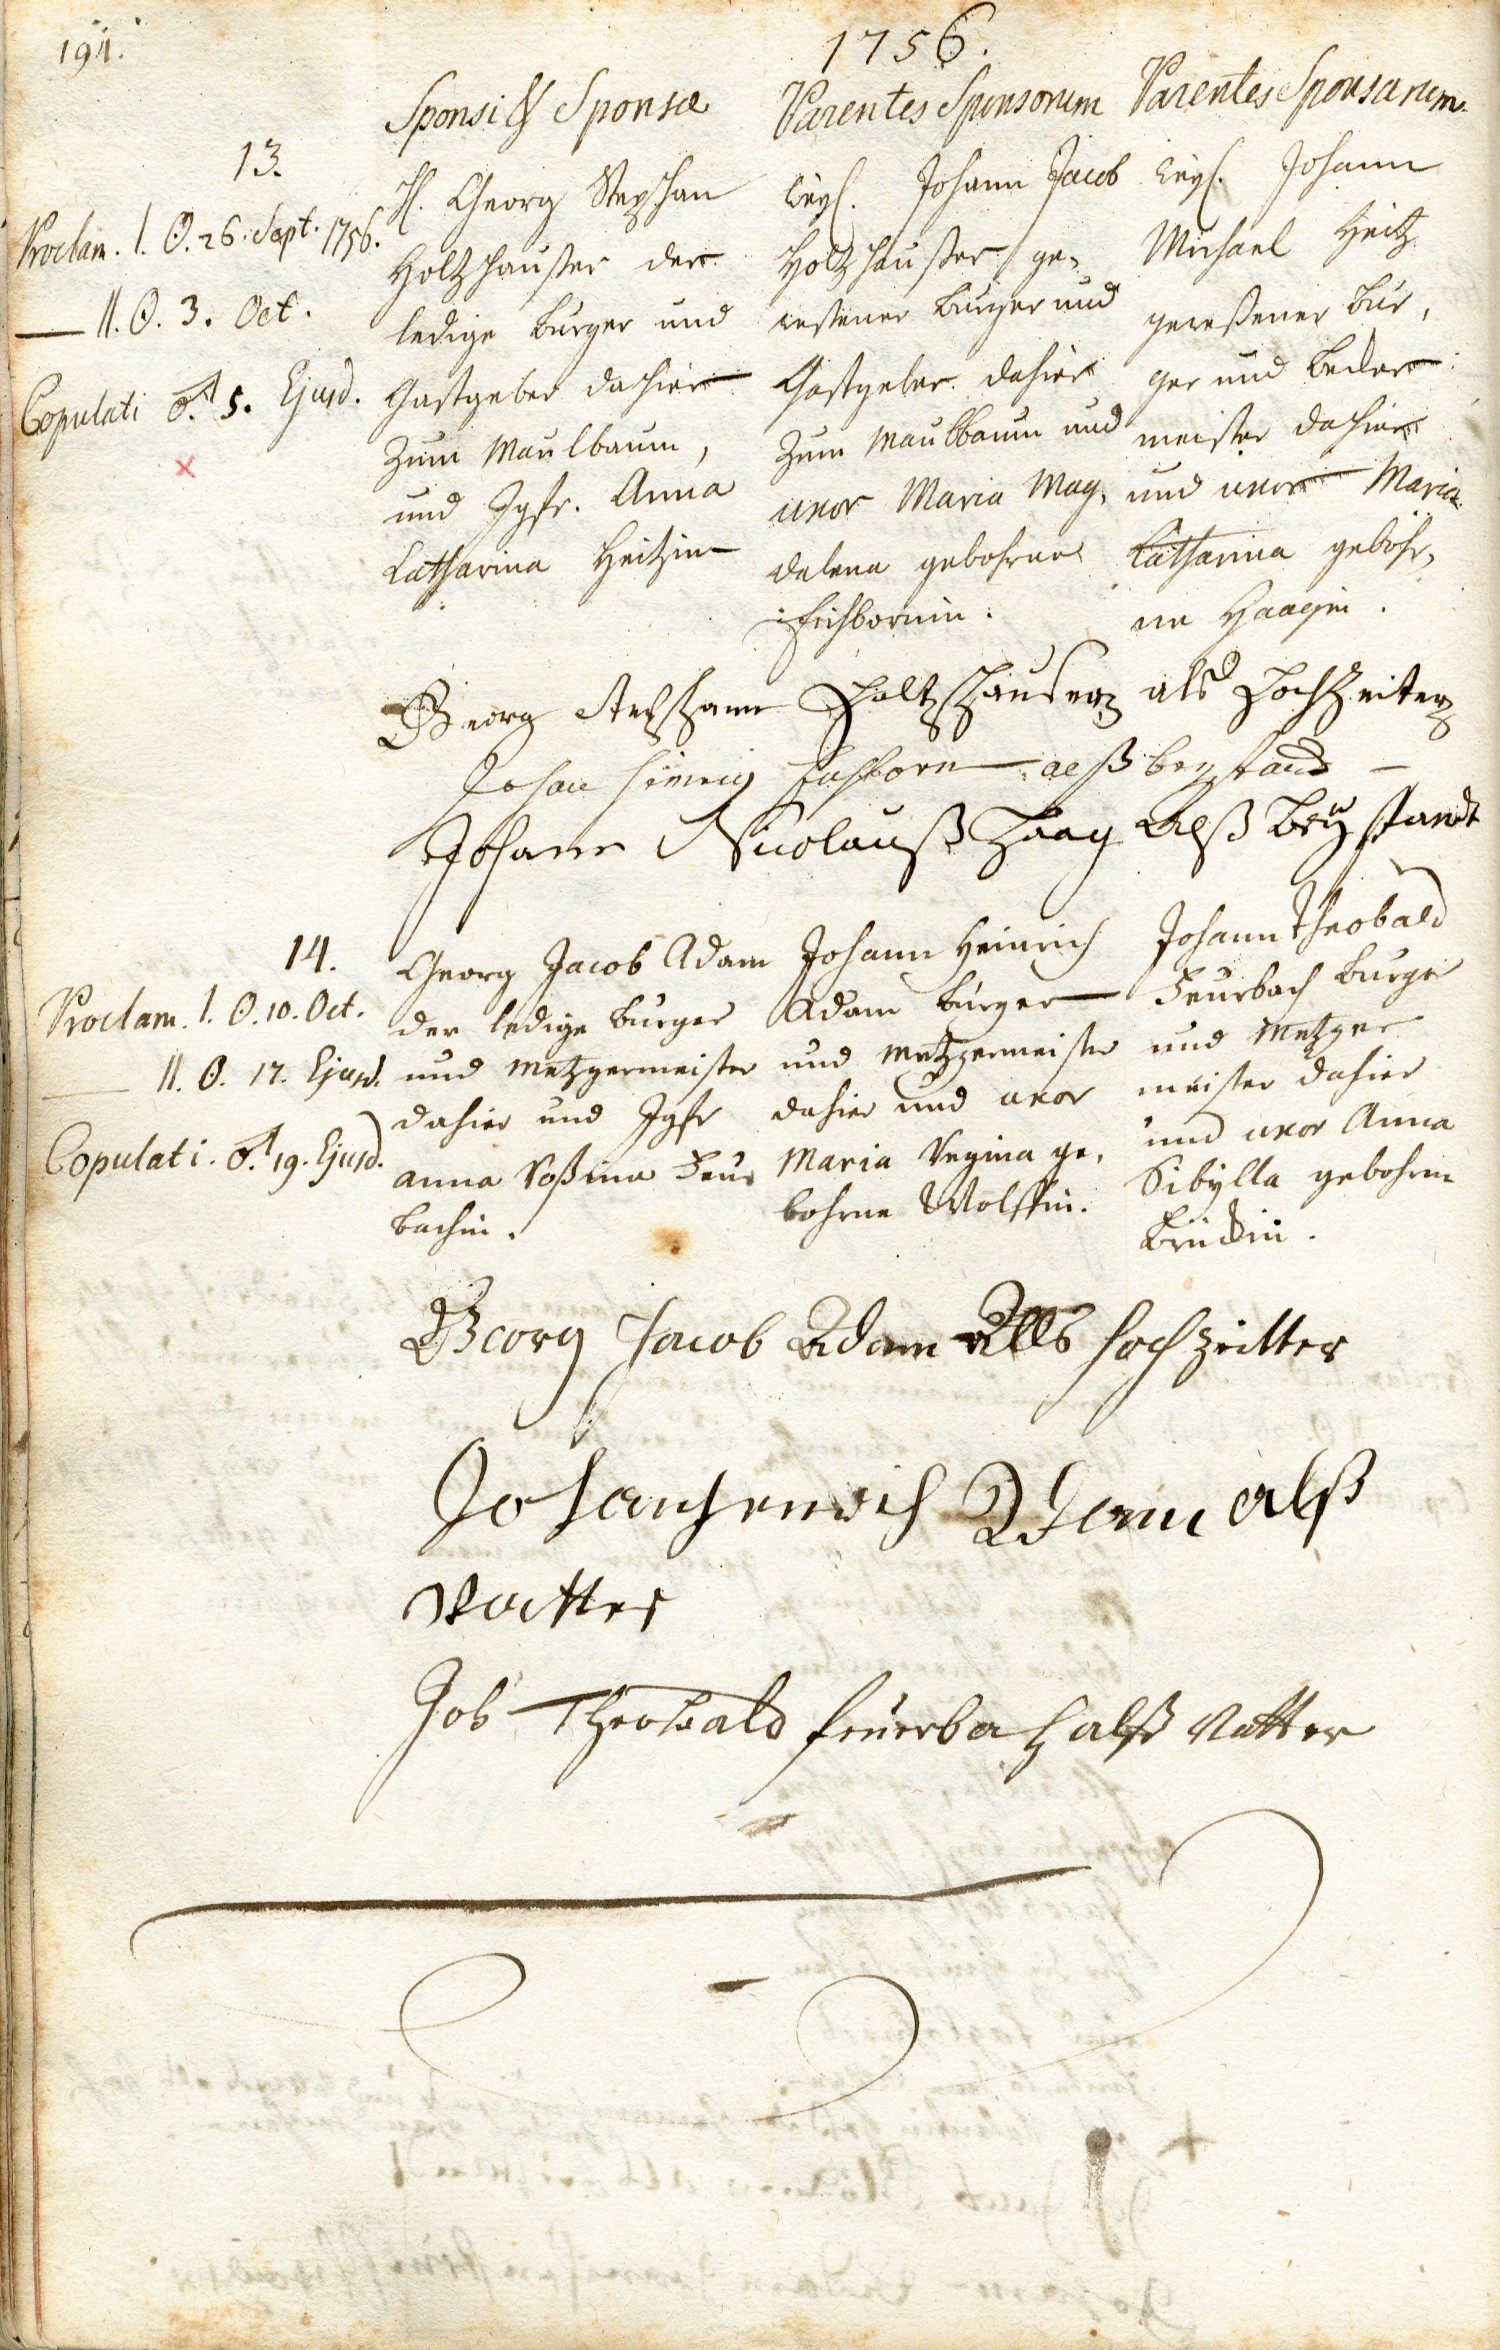 194.
1756.
Sponsi & Sponsæ
Parentes Sponsorum
Parentes Sponsarum.
13.
Proclam. I. ☉. 26. Sept. 1756.
— II. ☉. 3. Oct.
Copulati ♂. 5. Ejusd.
x
H. Georg Stephan
Holtzhauser der
ledige burger und
Gastgeber dahier
zum Maulbaum,
und Jgfr. Anna
Catharina Heitzin
weyl. Johann Jacob
Holtzhauser ge-
wesener burger und
Gastgeber dahier
zum Maulbaum und
uxor Maria Mag-
dalena gebohrne
Fischbornin.
weyl. Johann
Michael Heitz
geweßener bur-
ger und becker
meister dahier
und uxor Maria
Catharina gebohr-
ne Haagin.
Georg Stephann Holtzhauser als Hochzeiter
Johan Fischborn alß beystand
Johann Nicolauß Haag Alß Beystandt
14.
Proclam. I. ☉. 10. Oct.
— II. ☉. 17. Ejusd.
Copulati. ♂. 19. Ejusd.
Georg Jacob Adam
der ledige burger
und Metzgermeister
dahier und Jgfr
anna Roßina Feur
bachin.
Johann Heinrich
Adam burger
und Metzgermeister
dahier und uxor
Maria Regina ge-
bohrne Wolffin.
Johann Theobald
Feurbach burger
und Metzger
meister dahier
und uxor Anna
Sibylla gebohrne
Georg Jacob Adam Alls hochzeitter
Johanhenrich Adam alß
Vatter
Joh Theobald feuerbach alß Vatter